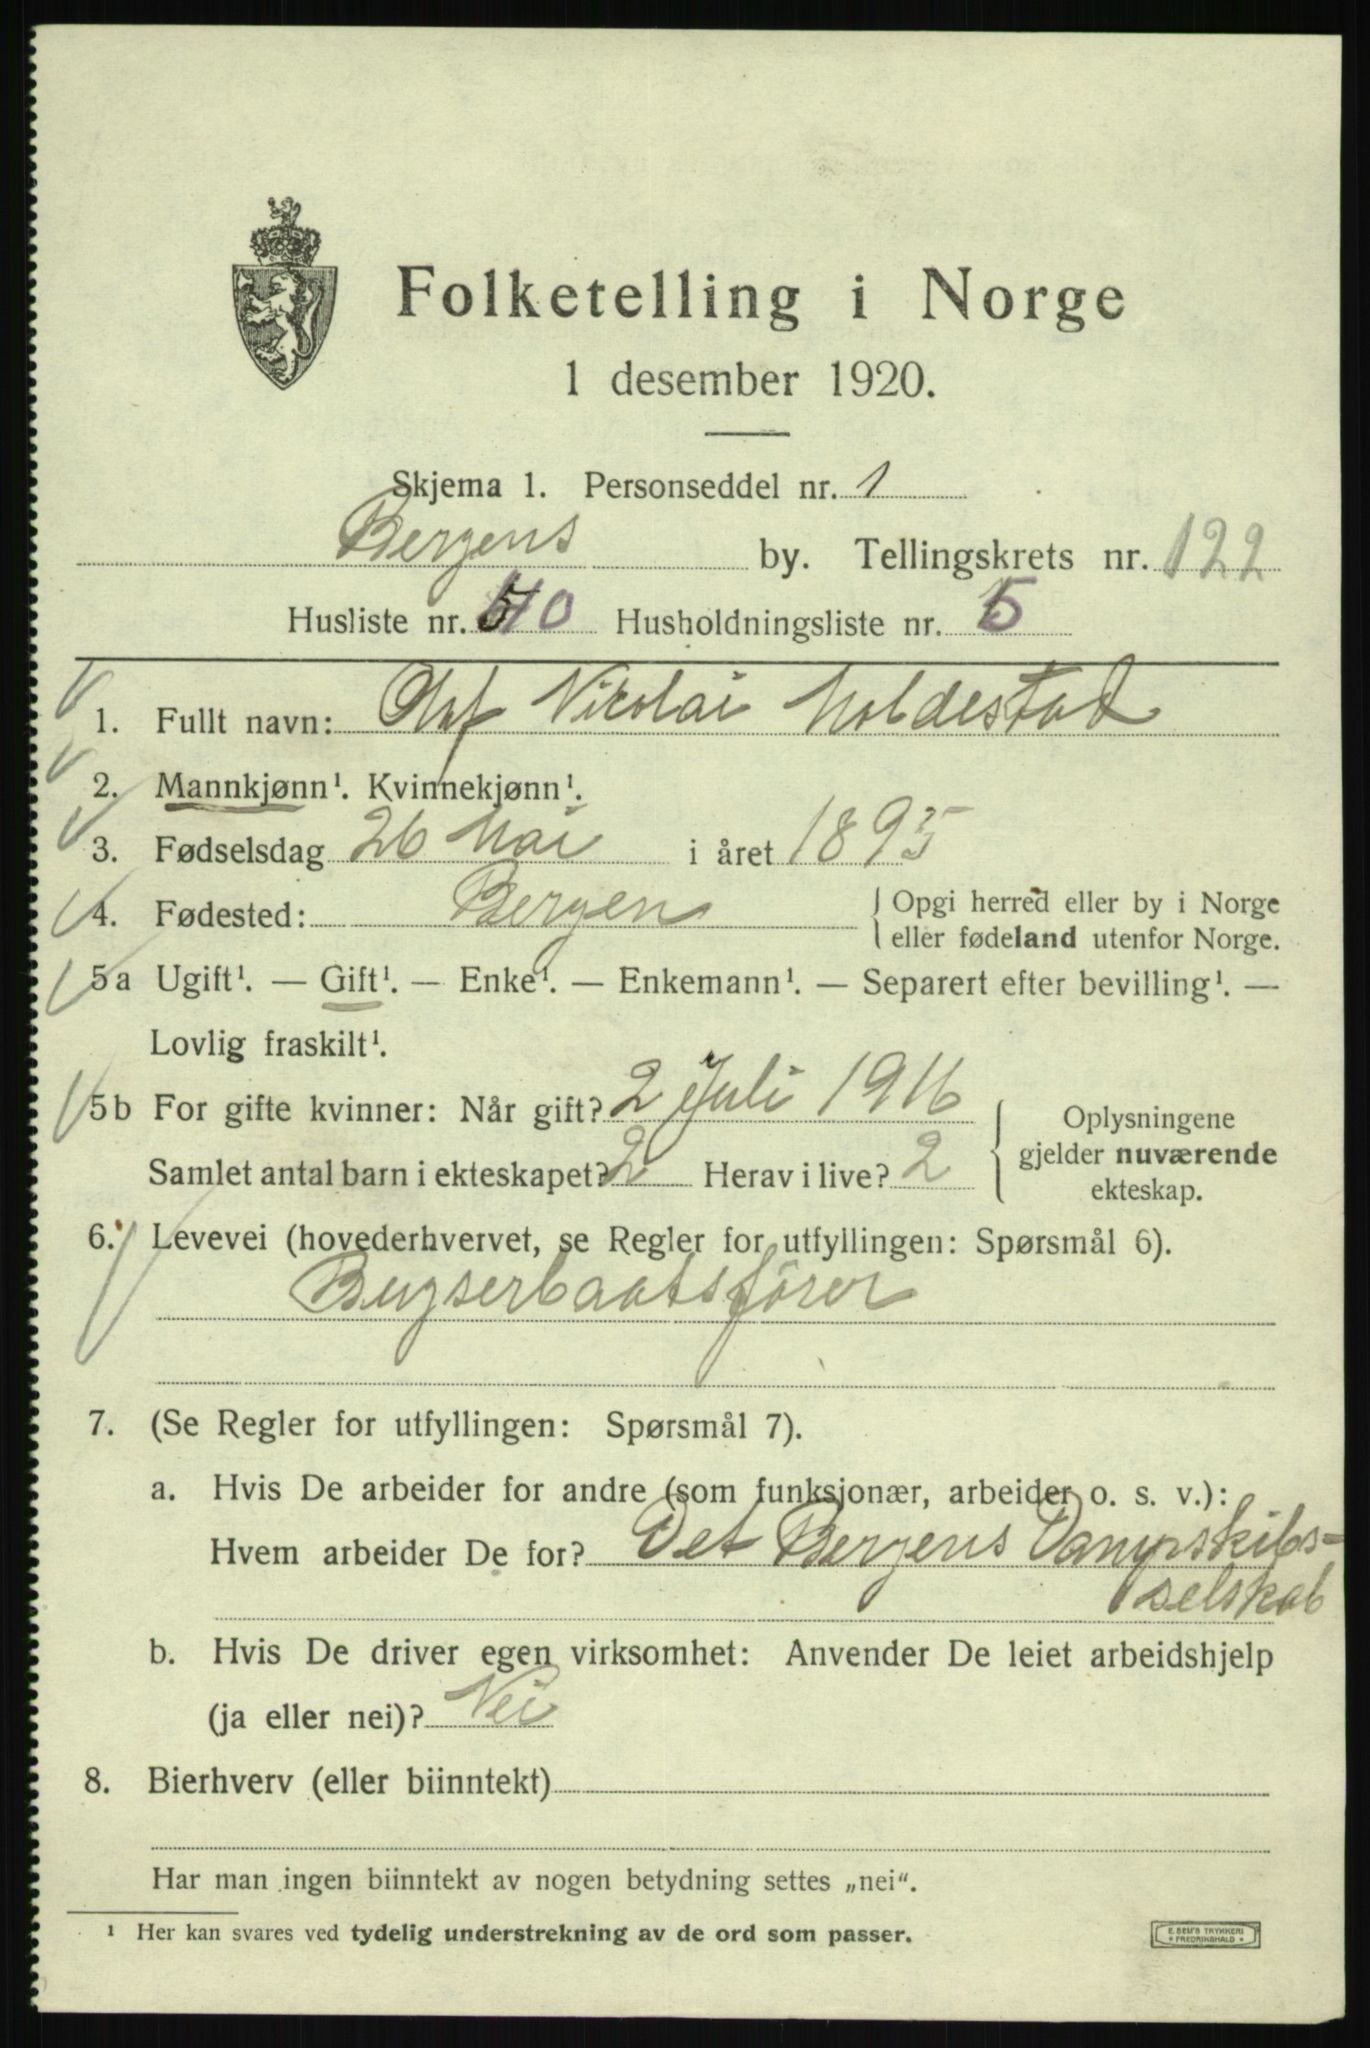 Folketelling i Norge
1 desember 1920.
Skjema 1. Personseddel nr. 1
Bergens by. Tellingskrets nr. 122
Husliste nr. 40 Husholdningsliste nr. 5
1. Fullt navn: Olaf Nicolai Moldestad
2. Mannkjønn¹. Kvinnekjønn¹.
3. Fødselsdag 26 Mai i året 1895
4. Fødested: Bergen { Opgi herred eller by i Norge
eller fødeland utenfor Norge.
5a Ugift¹. — Gift¹. — Enke¹. — Enkemann¹. — Separert efter bevilling¹. —
Lovlig fraskilt¹.
5b For gifte kvinner: Når gift? 2 Juli 1916
Samlet antal barn i ekteskapet? 2 Herav i live? 2
{ Oplysningene
gjelder nuværende
ekteskap.
6. Levevei (hovederhvervet, se Regler for utfyllingen: Spørsmål 6).
Bugserbaatsfører
7. (Se Regler for utfyllingen: Spørsmål 7).
a. Hvis De arbeider for andre (som funksjonær, arbeider o. s. v.):
Hvem arbeider De for? Det Bergens Dampskibs-
selskab
b. Hvis De driver egen virksomhet: Anvender De leiet arbeidshjelp
(ja eller nei)? Nei
8. Bierhverv (eller biinntekt)
Har man ingen biinntekt av nogen betydning settes „nei“.
¹ Her kan svares ved tydelig understrekning av de ord som passer.
E. SEM'S TRYKKERI
* FREDRIKSHALD *